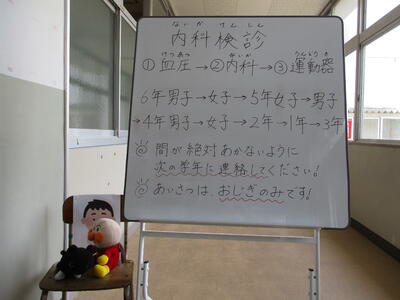 ないか けんしん
内科検診
けつあつ ないか うんどうき
①血圧→②内科→③運動器
6年男子→女子→5年女子→男子
→4年男子→女子→2年→1年→3年
◎ 間が絶対あかないように
次の学年に連絡してください!
◎ あいさつは、おじぎのみです!